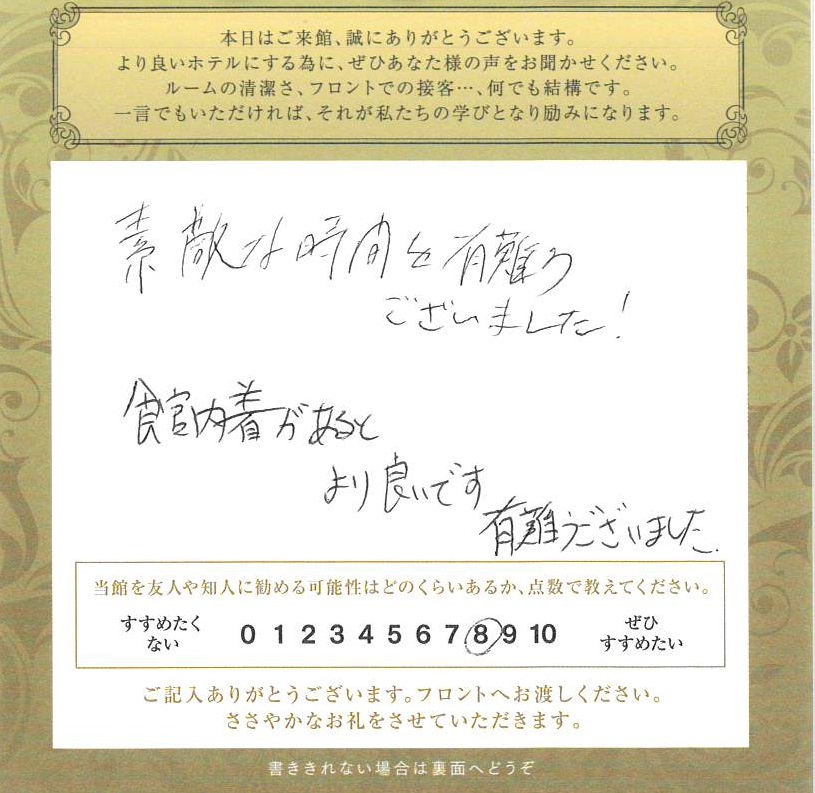 本日はご来館、誠にありがとうございます。
より良いホテルにする為に、ぜひあなた様の声をお聞かせください。
ルームの清潔さ、フロントでの接客…、何でも結構です。
一言でもいただければ、それが私たちの学びとなり励みになります。
素敵な時間を有難う
ございました!
館内着があると
より良いです
有難うございました.
当館を友人や知人に勧める可能性はどのくらいあるか、点数で教えてください。
すすめたく
ない
0 1 2 3 4 5 6 7 8 9 10
ぜひ
すすめたい
ご記入ありがとうございます。フロントへお渡しください。
ささやかなお礼をさせていただきます。
書ききれない場合は裏面へどうぞ